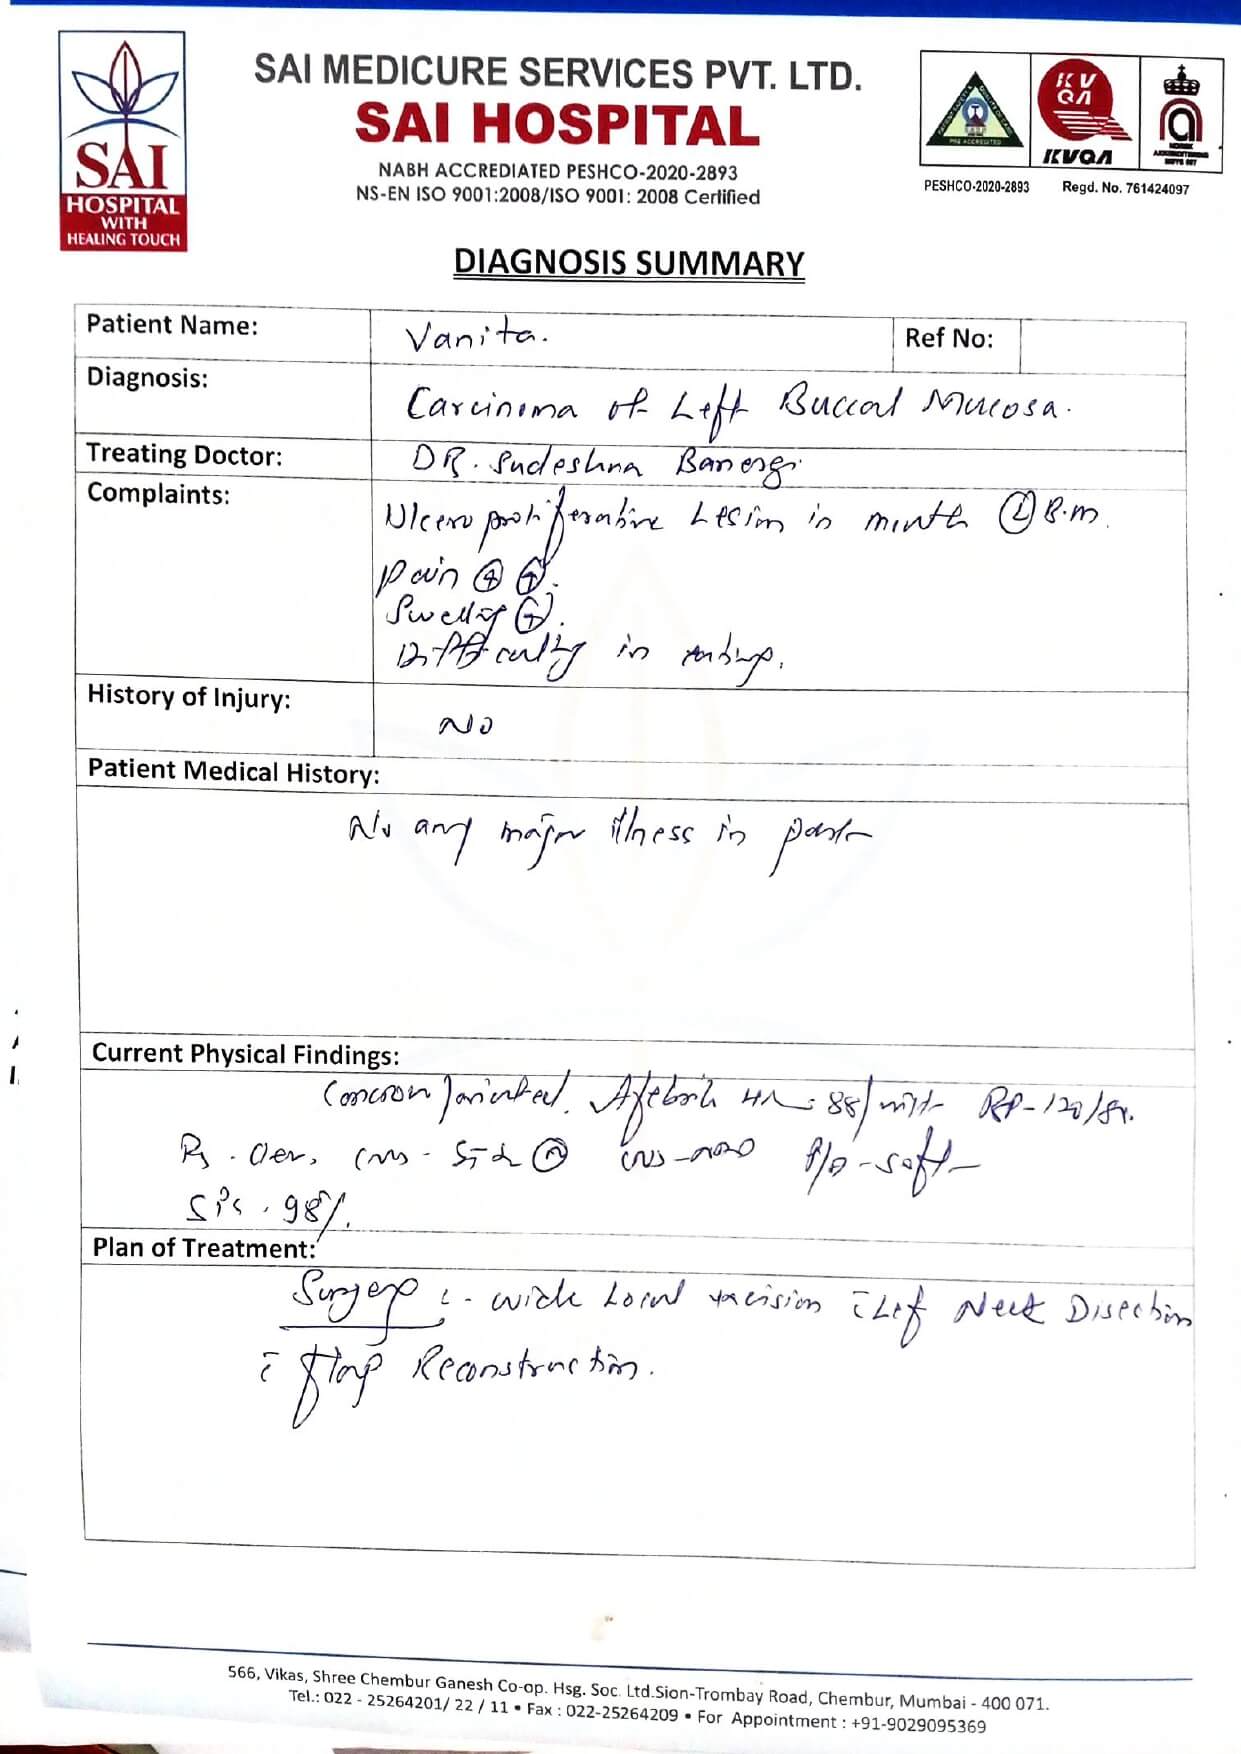 SAI MEDICURE SERVICES PVT. LTD.
SAI HOSPITAL
NABH ACCREDIATED PESHCO-2020-2893
NS-EN ISO 9001:2008/ISO 9001: 2008 Certified
SAI
HOSPITAL
WITH
HEALING TOUCH
KV
QA
KVQA
PESHCO-2020-2893 Regd. No. 761424097
DIAGNOSIS SUMMARY
Patient Name: Vanita. Ref No:
Diagnosis: Carcinoma of Left Buccal Mucosa.
Treating Doctor: DR. Sudeshna Banergi
Complaints: Ulcero proliferative Lesion in mouth (L) B.M.
Pain (+) (+).
Swelling (+).
Difficulty in
History of Injury: NO
Patient Medical History:
No any major illness in past
Current Physical Findings:
oriented. Afebrile 88/mit 120/
S1S2 P/A - soft
98%.
Plan of Treatment:
Surgery :- wide Local excision c̄ Lef Neck Disection
c̄ flap Reconstruction.
566, Vikas, Shree Chembur Ganesh Co-op. Hsg. Soc. Ltd.Sion-Trombay Road, Chembur, Mumbai - 400 071.
Tel.: 022 - 25264201/ 22 / 11 • Fax : 022-25264209 • For Appointment : +91-9029095369